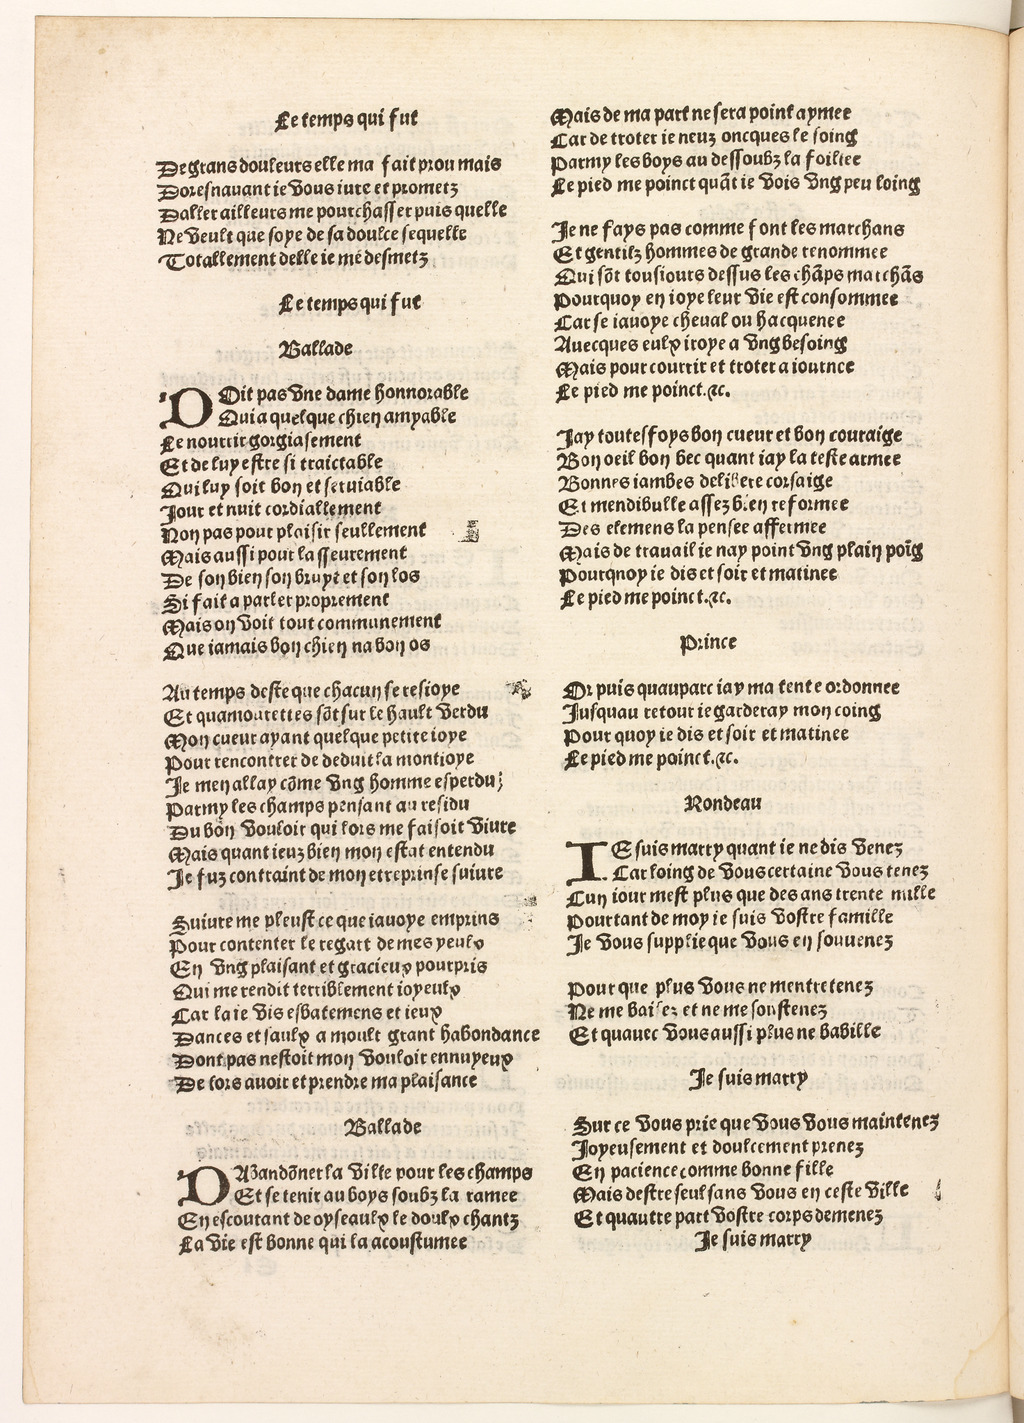 Le temps qui fut
De grans douleurs elle ma fait prou mais
Doresnauant ie vous iure et prometz
Daller ailleurs me pourchasser puis quelle
Ne veult que soye de sa doulce sequelle
Totallement delle ie me desmetz
Le temps qui fut
Ballade
DOit pas vne dame honnorable
Qui a quelque chien amyable
Le nourrir gorgiasement
Et de luy estre si traictable
Qui luy soit bon et seruiable
Jour et nuit cordiallement
Non pas pour plaisir seullement
Mais aussi pour lasseurement
De son bien son bruyt et son los
Si fait a parler proprement
Mais on voit tout communement
Que iamais bon chien na bon os
Au temps deste que chacun se resioye
Et quamourettes sõt sur le hault verdu
Mon cueur ayant quelque petite ioye
Pour rencontrer de deduit la montioye
Je men allay cõme vng homme esperdu;
Parmy les champs pensant au residu
Du bon vouloir qui lors me faisoit viure
Mais quant ieuz bien mon estat entendu
Je fuz contraint de mon etreprinse suiure
Suiure me pleust ce que iauoye emprins
Pour contenter le regart de mes yeulx
En vng plaisant et gracieux pourpris
Qui me rendit terriblement ioyeulx
Car la ie vis esbatemens et ieux
Dances et saulx a moult grant habondance
Dont pas nestoit mon vouloir ennuyeux
De lors auoir et prendre ma plaisance
Ballade
DAbandõner la ville pour les champs
Et se tenir au boys soubz la ramee
En escoutant de oyseaulx le doulx chantz
La vie est bonne qui la acoustumee
Mais de ma part ne sera point aymee
Car de troter ie neuz oncques le soing
Parmy les boys au dessoubz la foillee
Le pied me poinct quãt ie vois vng peu loing
Je ne fays pas comme font les marchans
Et gentilz hommes de grande renommee
Qui sõt tousiours dessus les chãps marchãs
Pourquoy en ioye leur vie est consommee
Car se iauoye cheual ou hacquenee
Auecques eulx iroye a vng besoing
Mais pour courrir et troter a iournee
Le pied me poinct.⁊c.
Jay toutesfoys bon cueur et bon couraige
Bon oeil bon bec quant iay la teste armee
Bonnes iambes delibere corsaige
Et mendibulle assez bien reformee
Des elemens la pensee affermee
Mais de trauail ie nay point vng plain poĩg
Pourqnoy ie dis et soir et matinee
Le pied me poinct.⁊c.
Prince
Or puis quauparc iay ma tente ordonnee
Jusquau retour ie garderay mon coing
Pour quoy ie dis et soir et matinee
Le pied me poinct.⁊c.
Rondeau
IE suis marry quant ie ne dis venez
Car loing de vous certaine vous tenez
Lun iour mest plus que des ans trente mille
Pourtant de moy ie suis vostre famille
Je vous supplie que vous en souuenez
Pour que plus vous ne mentretenez
Ne me baisez et ne me soustenez
Et quauec vous aussi plus ne babille
Je suis marry
Sur ce vous prie que vous vous maintenez
Joyeusement et doulcement prenez
En pacience comme bonne fille
Mais destre seul sans vous en ceste ville
Et quautre part vostre corps demenez
Je suis marry